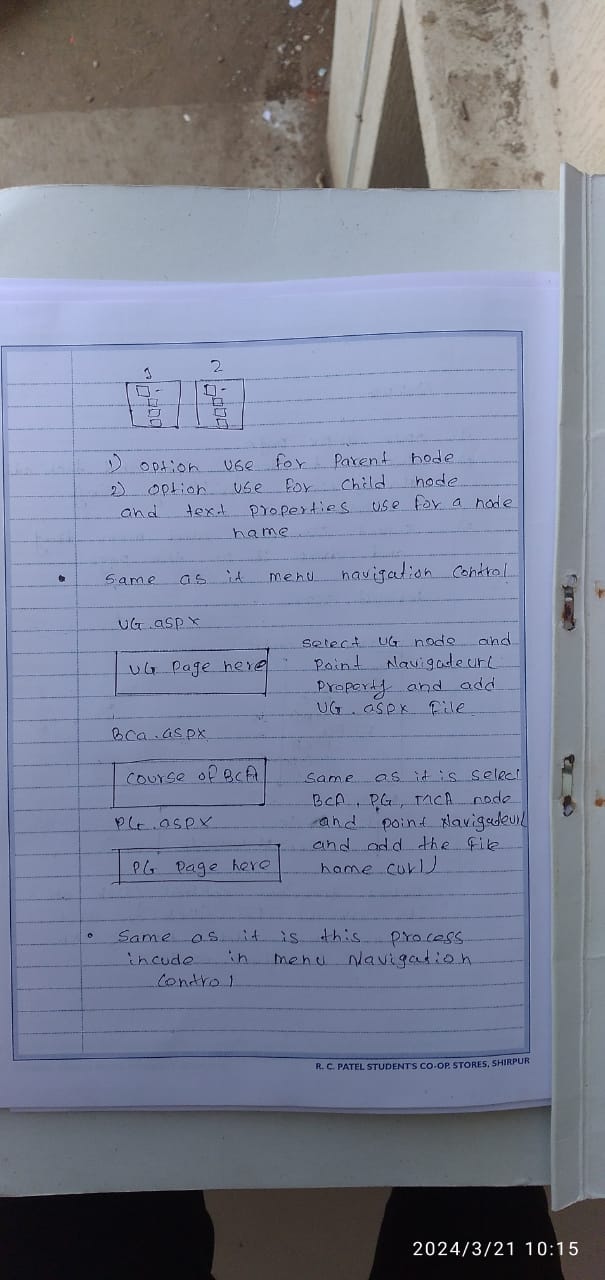 1 2
1) option use for Parent node
2) option use for child node
and text properties use for a node
name
• Same as it menu navigation Control
UG.aspx
UG Page here
Select UG node and
Point Navigateurl
Property and add
UG.aspx file
BCa.aspx
Course of BCA
Same as it is select
BCA, PG, MCA node
and point Navigateurl
and add the file
name (url)
PG.aspx
PG Page here
• Same as it is this process
incude in menu Navigation
Control
R. C. PATEL STUDENT'S CO-OP. STORES, SHIRPUR
2024/3/21 10:15